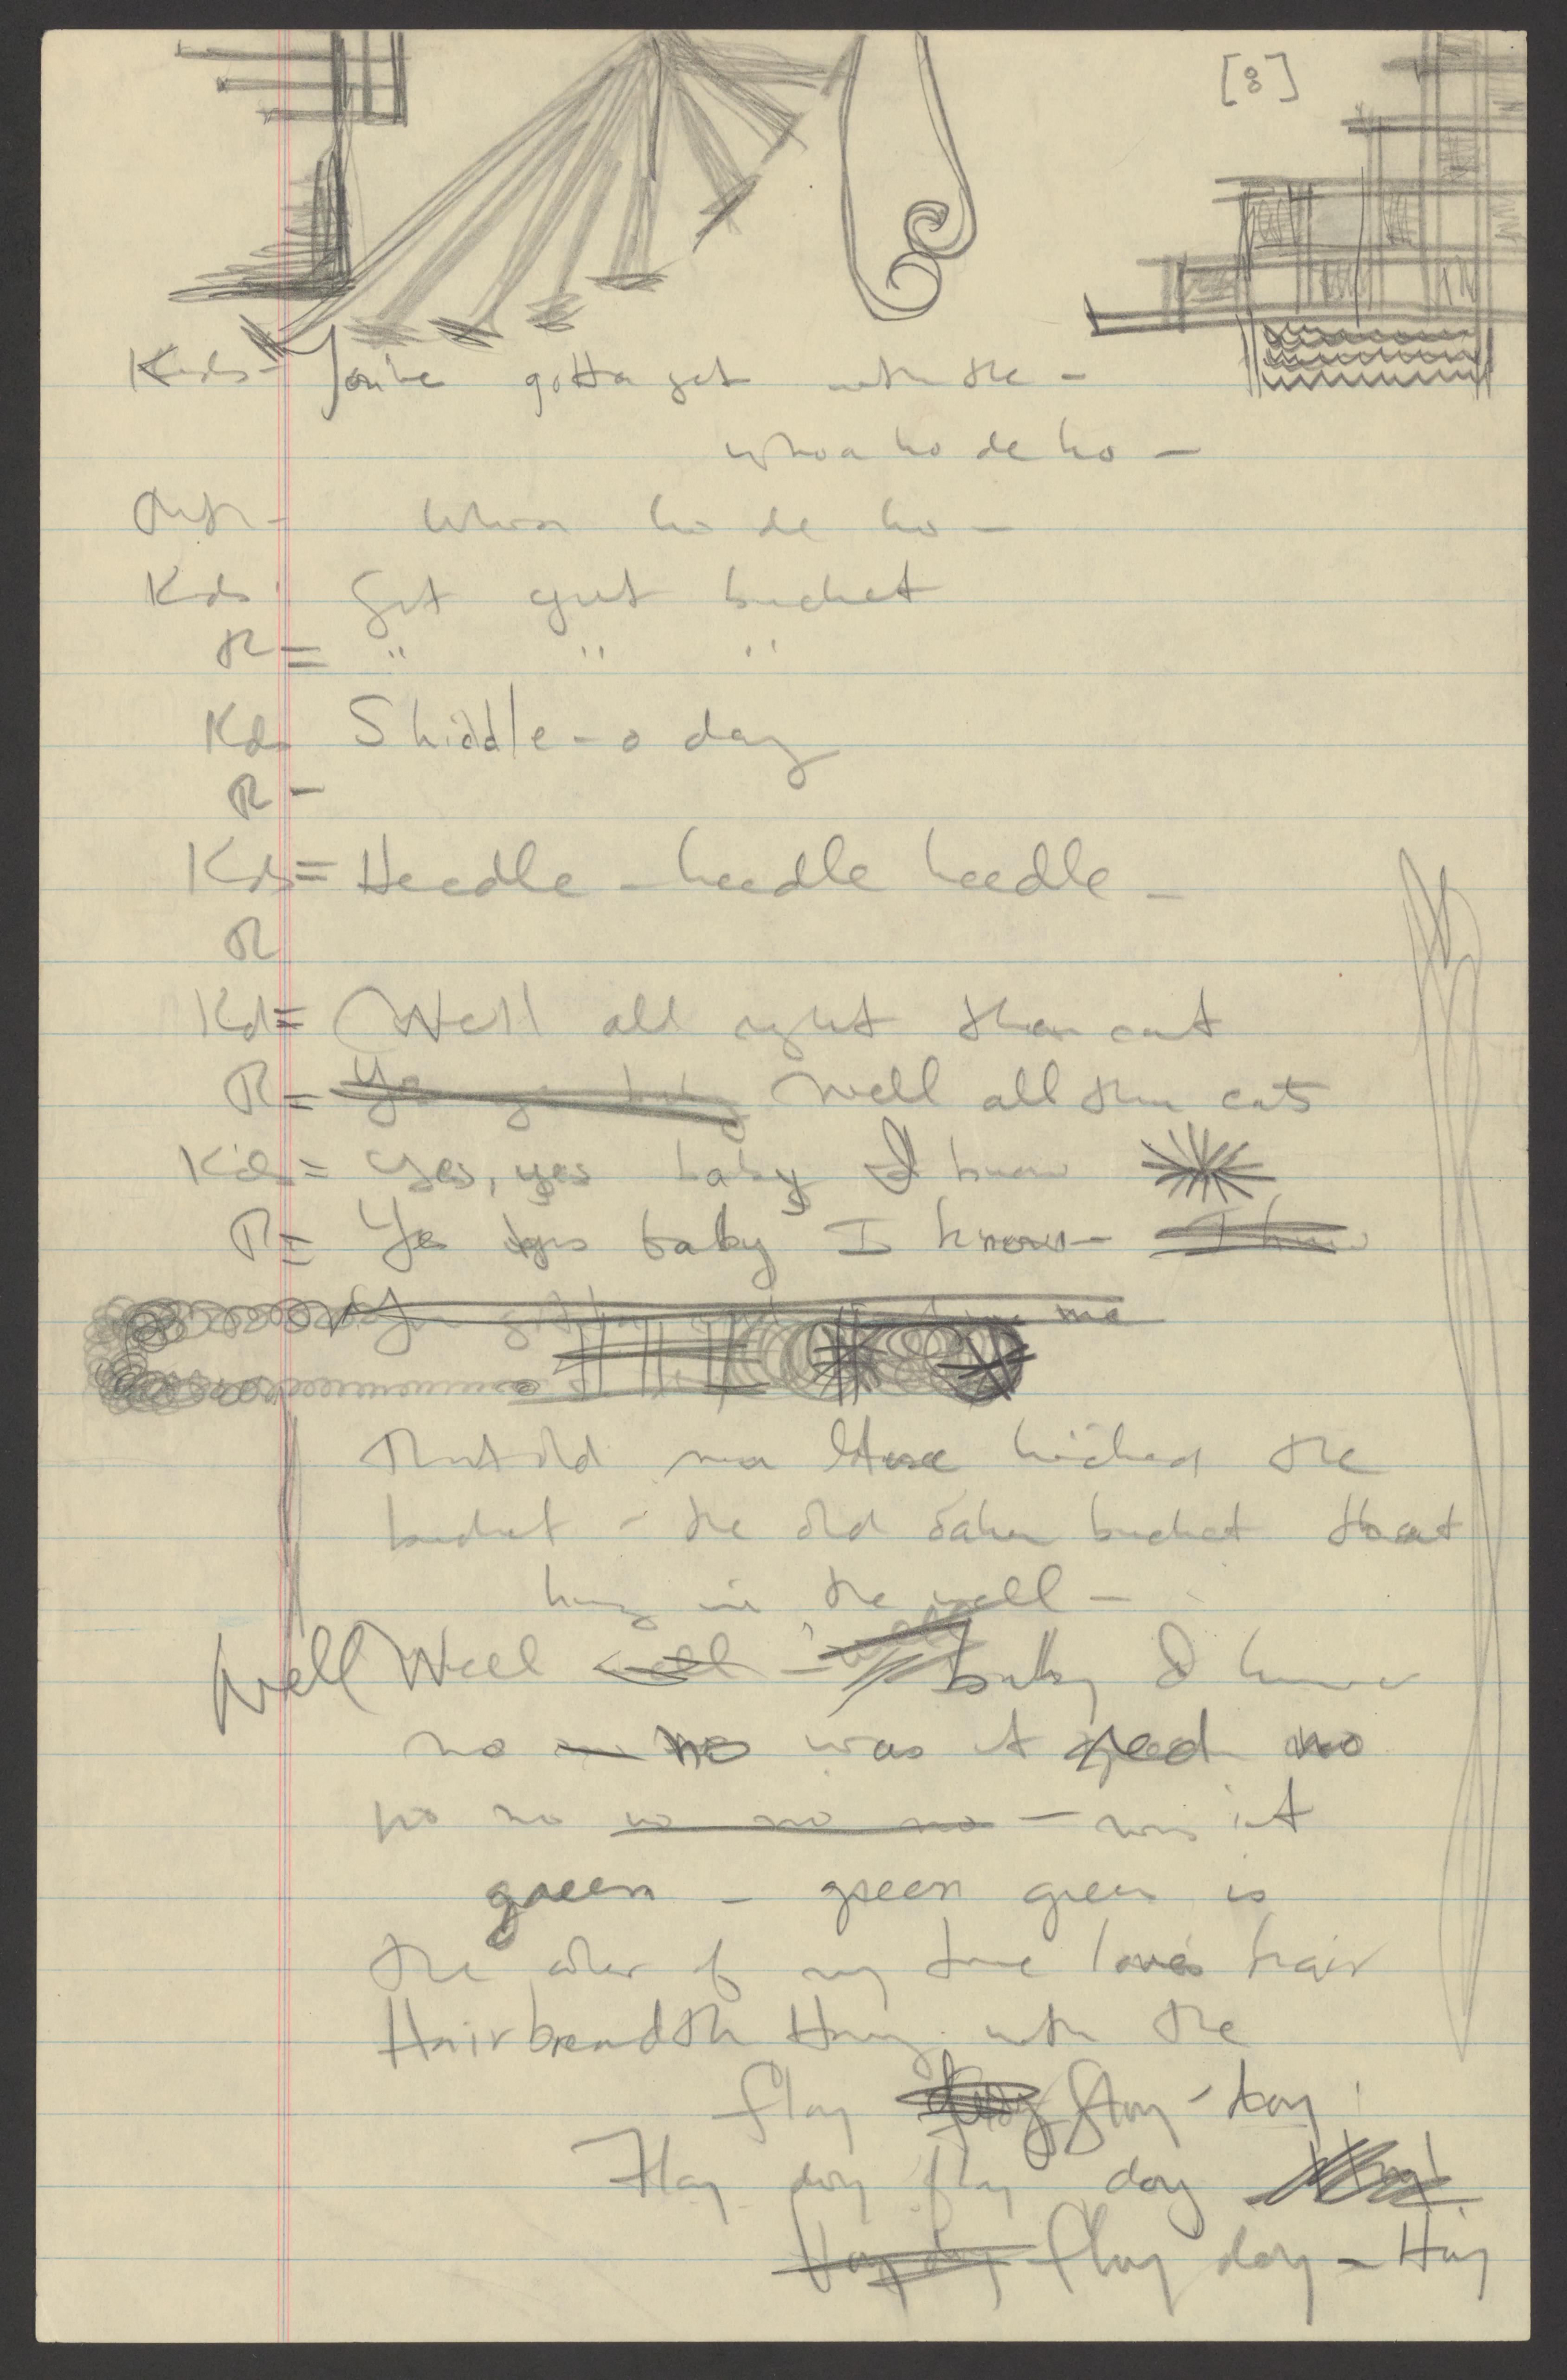 [8]
Kids- You've gotta get with the -
whoa ho de ho -
Ruth - Whoa ho de ho -
Kids Gut gut bucket
R = " " "
Kds Skiddle-o day
R -
Kds = Heedle - heedle heedle -
R
Kd = Well all right then cat
R = Well all then cats
Kids = Yes, yes baby I know
R = Yes yes baby I know - I know
me
That old man kicked the
bucket - the old oaken bucket that
hung in the well -
Well Well well - well baby I know
no no was it red no
no no no no no - was it
green - green green is
the color of my true love's hair
Hairbreadth Harry with the
flay flay - day
Flay day flay day
flay day - Hay